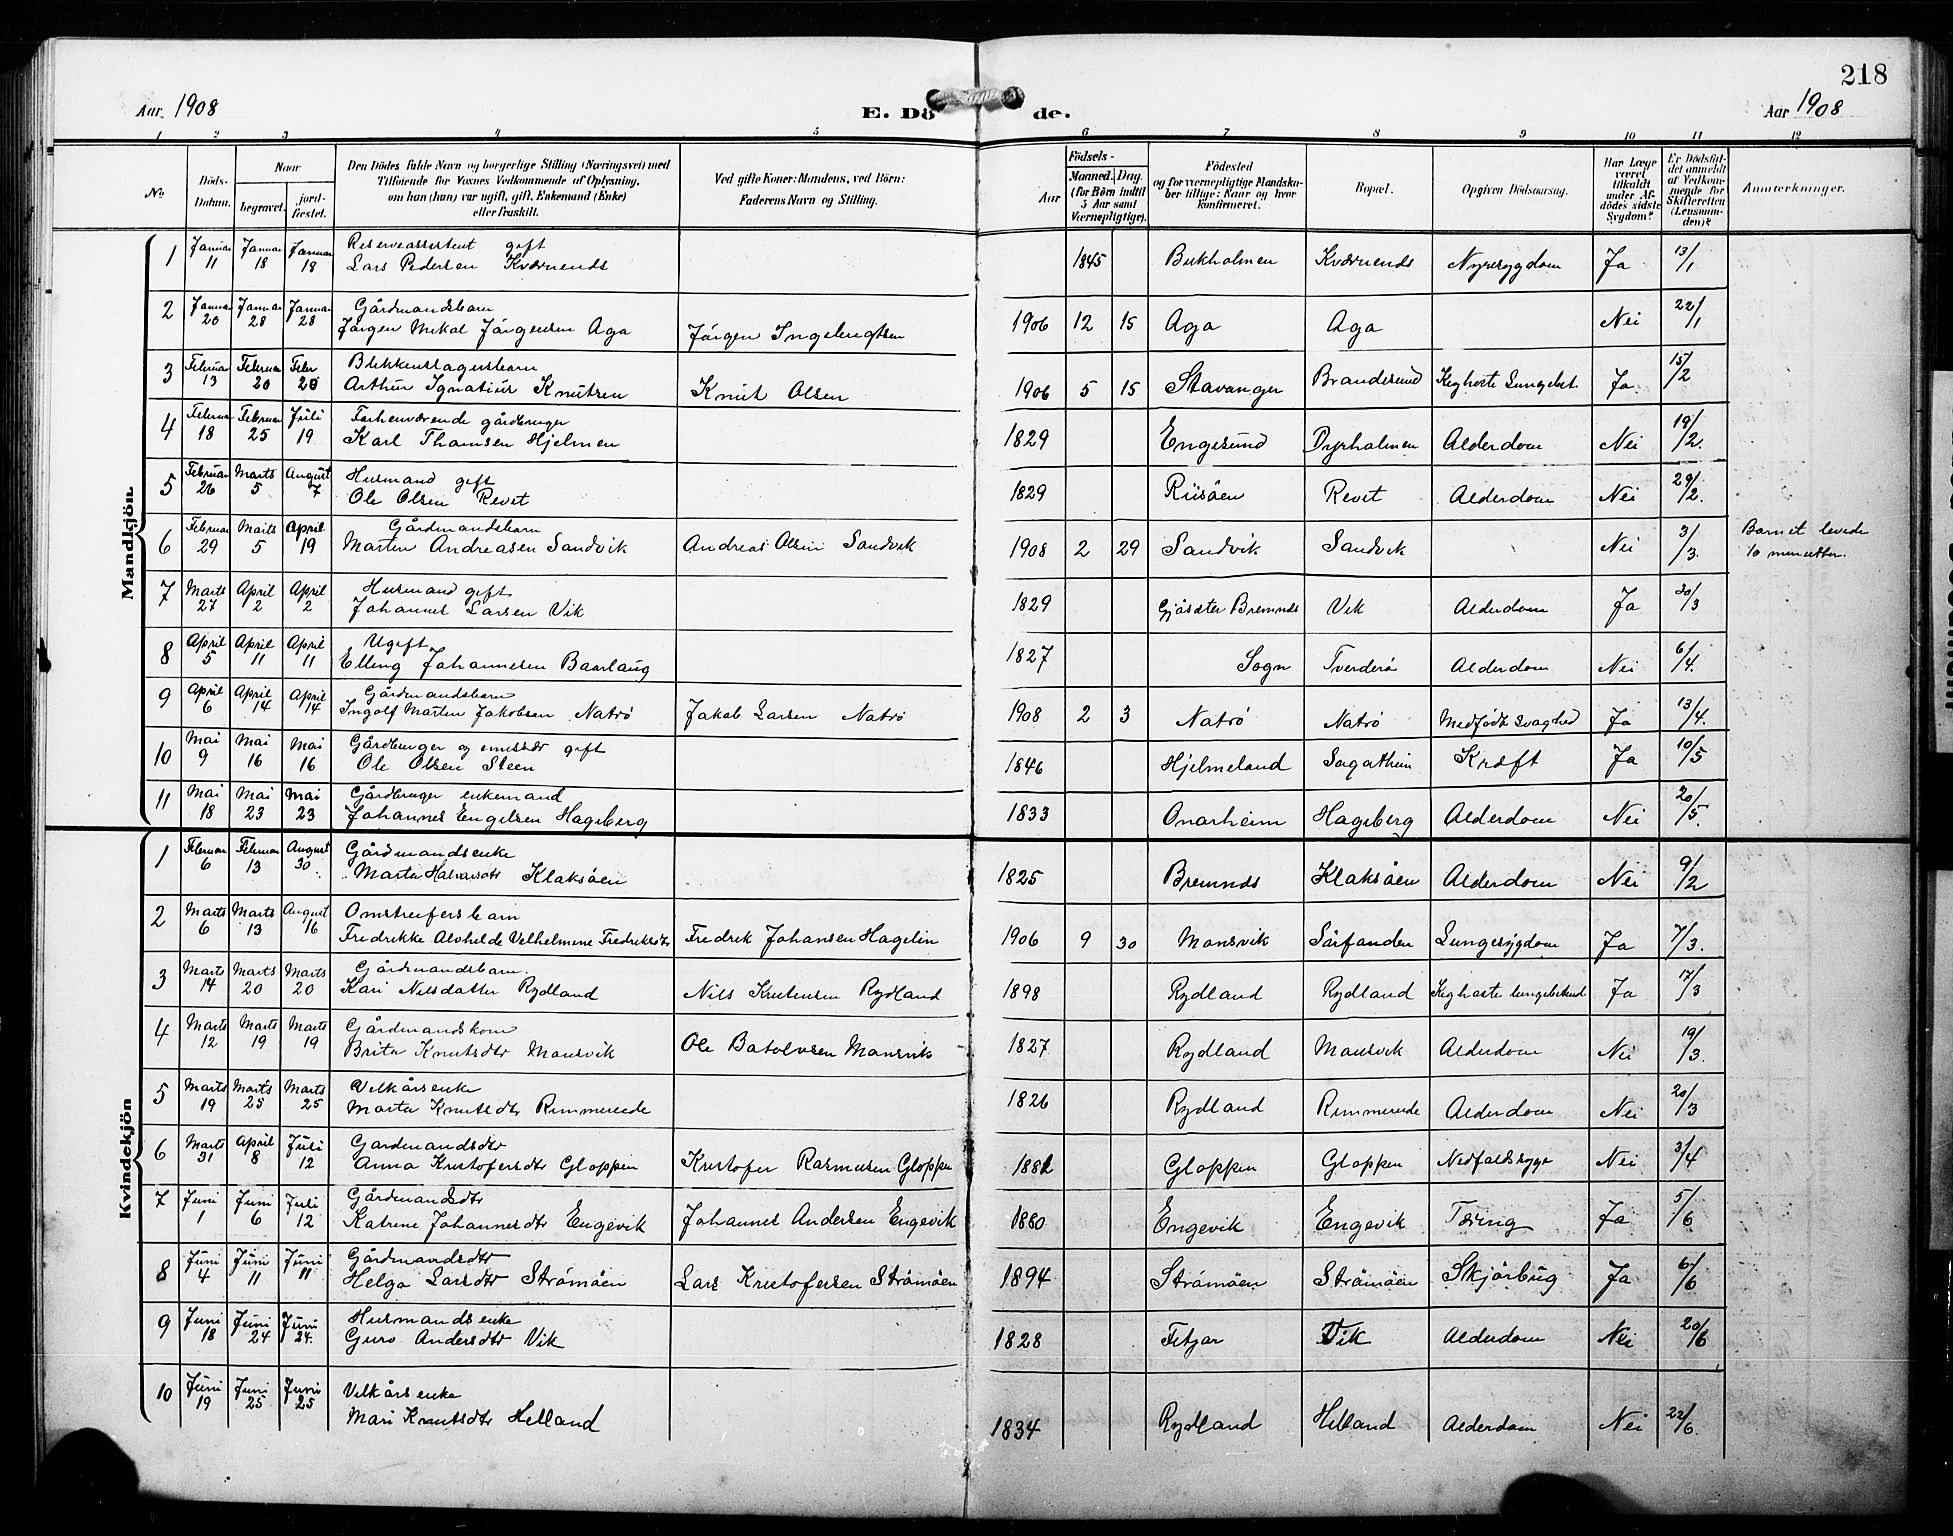 218
Aar 1908 E. Dö de. Aar 1908
1 2 3 4 5 6 7 8 9 10 11 12
No. Döds-Datum. Naar begravet. jord-fæstet. Den Dödes fulde Navn og borgerlige Stilling (Næringsvei) med Tilföiende for Voxnes Vedkommende af Oplysning, om han (hun) var ugift, gift, Enkemand (Enke) eller fraskilt. Ved gifte Koner: Mandens, ved Börn: Faderens Navn og Stilling. Födsels- Aar Maaned. Dag. (for Börn indtil 5 Aar samt Værnepligtige). Födested og for værnepligtige Mandska-ber tillige: Naar og hvor konfirmeret. Bopæl. Opgiven Dödsaarsag. Har Læge været tilkaldt under Af-dödes sidste Sygdom? Er Dödsfal-det anmeldt af Vedkom-mende for Skifteretten (Lensman-den)? Anmærkninger.
Mandkjön
1 Januar 11 Januar 18 Januar 18 Reserveassistent gift
Lars Pedersen Kværnends 1845 Bukholmen Kværnends Nyresygdom Ja 13/1
2 Januar 20 Januar 28 Januar 28 Gårdmandsbarn
Jørgen Mikal Jörgensen Aga Jørgen Ingebrigtsen 1906 12 15 Aga Aga Nei 22/1
3 Februar 13 Februar 20 Febr 20 Blikkenslagersbarn
Arthur Ignatius Knutsen Knut Olsen 1906 5 15 Stavanger Brandesund Kighoste Lungebet Ja 15/2
4 Februar 18 Februar 25 Juli 19 Forhenværende gårdbruger
Karl Thomsen Hjelmen 1829 Engesund Dyrholmen Alderdom Nei 19/2
5 Februar 26 Marts 5 August 7 Husmand gift
Ole Olsen Revet 1829 Risöen Revet Alderdom Nei 29/2
6 Februar 29 Marts 5 April 19 Gårdmandsbarn
Martin Andreasen Sandvik Andreas Olsen Sandvik 1908 2 29 Sandvik Sandvik Nei 3/3 Barnet levede 10 minutter.
7 Marts 27 April 2 April 2 Husmand gift
Johannes Larsen Vik 1829 Gjösæter Bremnds Vik Alderdom Ja 30/3
8 April 5 April 11 April 11 Ugift
Elling Johannesen Baarlaug 1827 Sogn Tverderö Alderdom Nei 6/4
9 April 6 April 14 April 14 Gårdmandsbarn
Ingolf Martin Jakobsen Natrö Jakob Larsen Natrö 1908 2 3 Natrö Natrö Medfödt svaghed Ja 13/4
10 Mai 9 Mai 16 Mai 16 Gårdbruger og emissær gift
Ole Olsen Steen 1846 Hjelmeland Sagatheim Kræft Ja 10/5
11 Mai 18 Mai 23 Mai 23 Gårdbruger enkemand
Johannes Engelsen Hageberg 1833 Onarheim Hageberg Alderdom Nei 20/5
Kvindekjön
1 Februar 6 Februar 13 August 30 Gårdmandsenke
Marta Halvarsdtr Klaksöen 1825 Bremnds Klaksöen Alderdom Nei 9/2
2 Marts 6 Marts 13 August 16 Omstreifersbarn
Fredrikke Alvhelde Velhelmine Fredriksdtr Fredrik Johansen Hagelin 1906 9 30 Mansvik Sörfanden Lungesygdom Ja 7/3
3 Marts 14 Marts 20 Marts 20 Gårdmandsbarn
Kari Nilsdatter Rydland Nils Kristensen Rydland 1898 Rydland Rydland Kighoste lungebetend Ja 17/3
4 Marts 12 Marts 19 Marts 19 Gårdmandskone
Brita Knutsdtr Mansvik Ole Batolvsen Mansvik 1827 Rydland Mansvik Alderdom Nei 19/3
5 Marts 19 Marts 25 Marts 25 Vilkårsenke
Marta Knutsdtr Rimmereide 1826 Rydland Rimmereide Alderdom Nei 20/3
6 Marts 31 April 8 Juli 12 Gardmandsdtr
Anna Kristofersdtr Gloppen Kristofer Rasmusen Gloppen 1882 Gloppen Gloppen Nedfaldssyge Nei 3/4
7 Juni 1 Juni 6 Juli 12 Gårdmandsdtr
Katrine Johannesdtr Engevik Johannes Andersen Engevik 1880 Engevik Engevik Tæring Ja 5/6
8 Juni 4 Juni 11 Juni 11 Gårdmandsdtr
Helga Larsdtr Strömöen Lars Kristofersen Strömöen 1894 Strömöen Strömöen Skjörbug Ja 6/6
9 Juni 18 Juni 24 Juni 24 Husmandsenke
Guro Andersdtr Vik 1828 Fitjar Vik Alderdom Nei 20/6
10 Juni 19 Juni 25 Juni 25 Vilkårsenke
Mari Knutsdtr Helland 1834 Rydland Helland Alderdom Nei 22/6